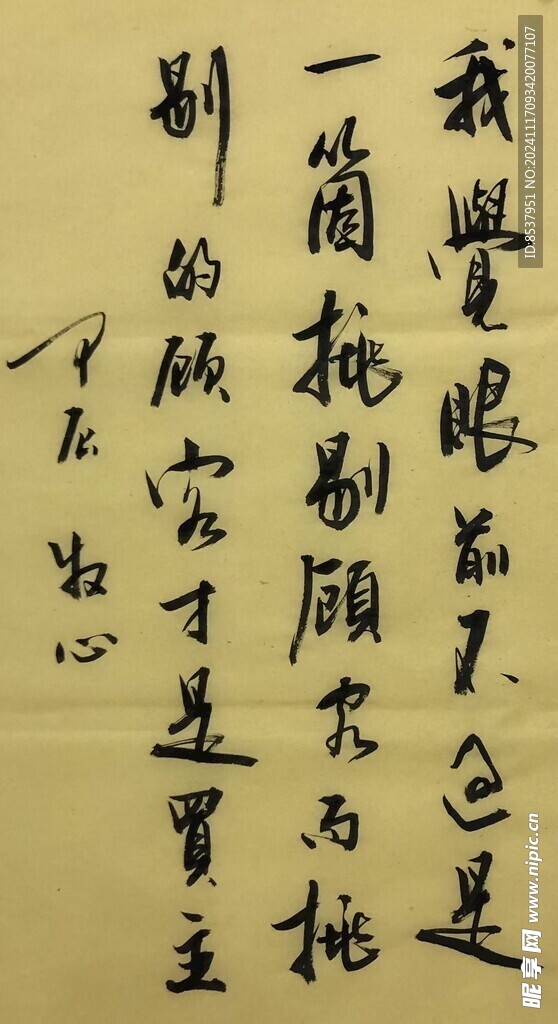 我覺眼前不過是
一箇挑剔顧客而挑
剔的顧客才是買主
甲辰 牧心
ID:8537951 NO:20241117093420077107
昵享网 www.nipic.cn